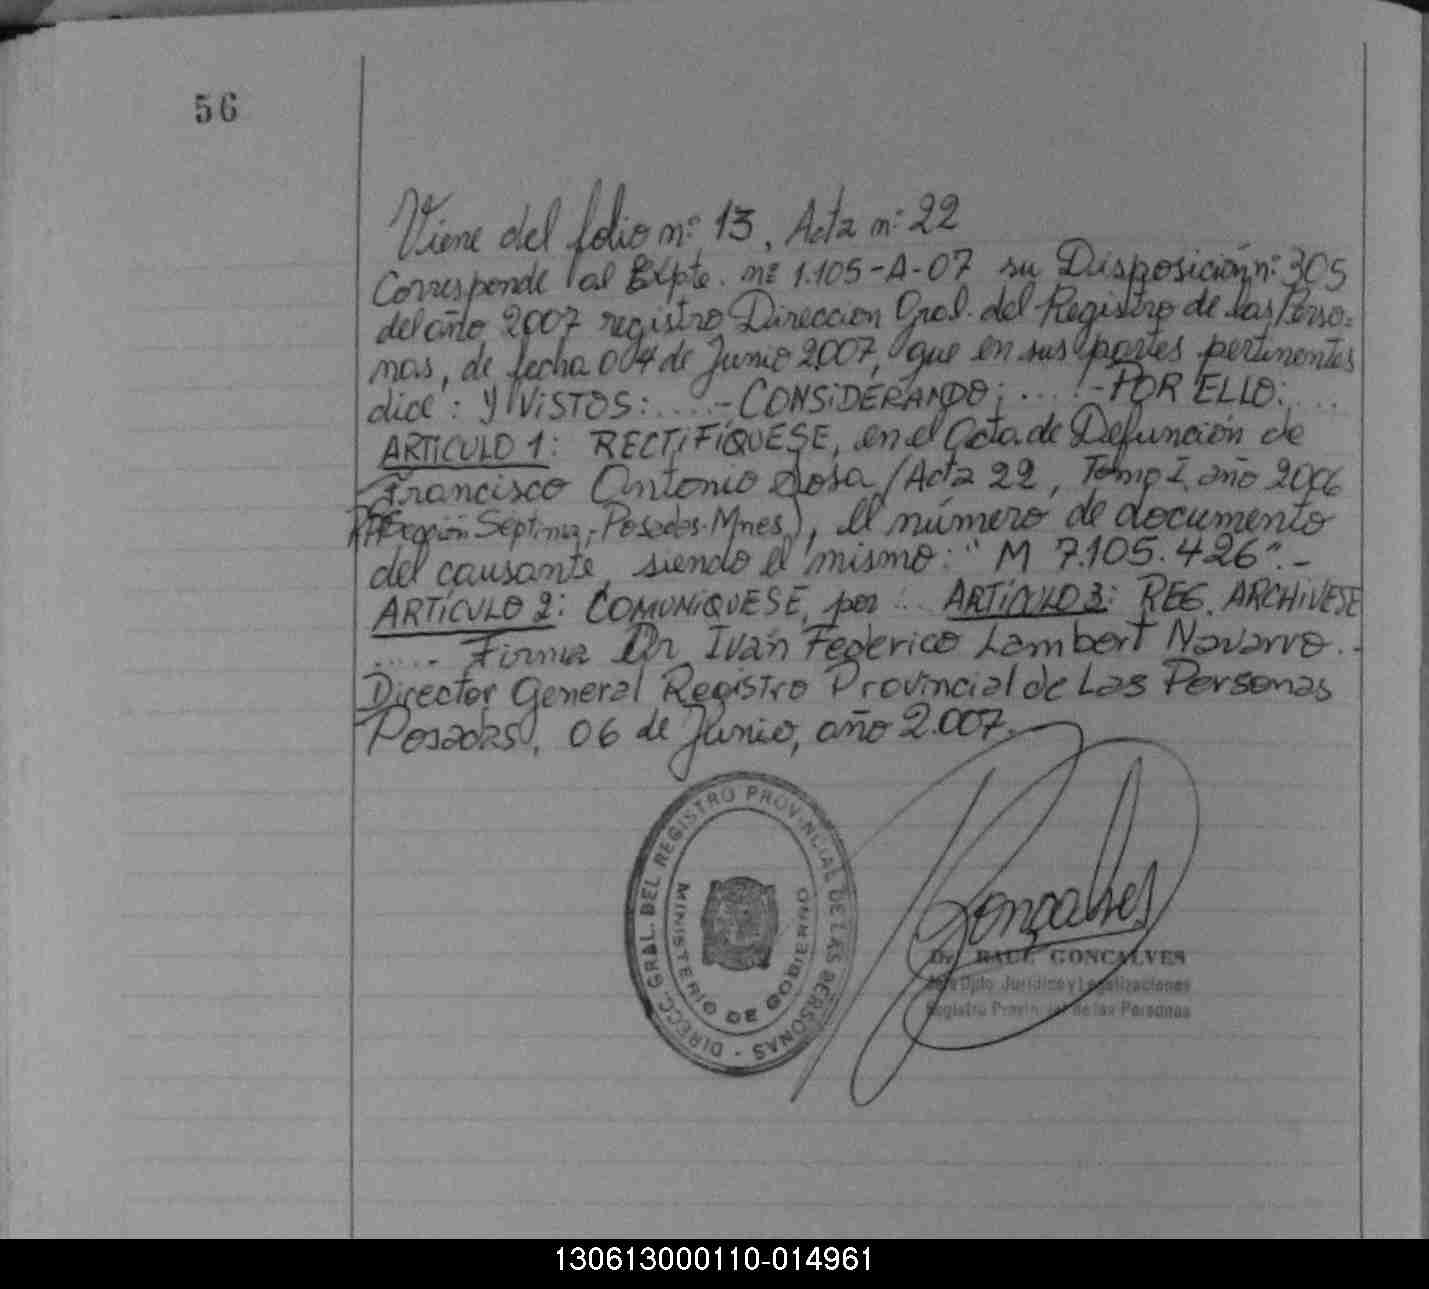 56
Viene del folio nº 13, Acta nº 22
Corresponde al Expte. nº 1.105-A-07 su Disposición nº 305
del año 2007 registro Direccion Gral. del Registro de las Perso=
nas, de fecha 04 de Junio 2007, que en sus partes pertinentes
dice: y VISTOS:....- CONSIDERANDO;....!- POR ELLO:....
ARTICULO 1: RECTIFÍQUESE, en el Acta de Defunción de
Francisco Antonio Sosa (Acta 22, Tomo I, año 2006
Sección Séptima, Posadas-Mnes), el número de documento
del causante, siendo el mismo: "M 7.105.426".-
ARTÍCULO 2: COMUNÍQUESE, por... ARTÍCULO 3: REG. ARCHIVESE
..... Firma Dr Iván Federico Lambert Navarro.-
Director General Registro Provincial de Las Personas
Posadas, 06 de Junio, año 2.007.
DIRECC. GRAL. DEL REGISTRO PROVINCIAL DE LAS PERSONAS -
MINISTERIO DE GOBIERNO
Goncalves
Dr. RAUL GONCALVES
Jefe Dpto. Jurídico y Legalizaciones
Registro Provincial de las Personas
130613000110-014961